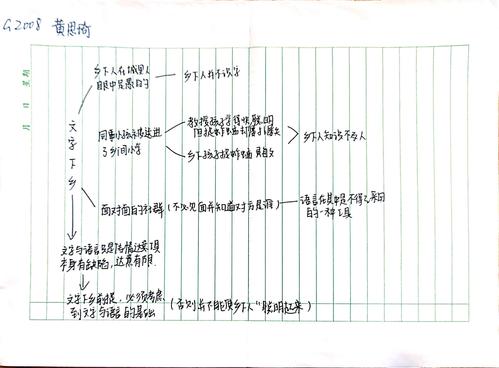 G2008 黄思琦
月 日 星期
文字下乡
乡下人在城里人
眼中是愚的
乡下人并不识字
同事小孩未报送进
了乡间小学
教授孩子学得快、聪明
但捉蚱蜢却
乡下孩子捉蚱蜢
乡下人知识不及人
面对面的社群(不必见面并知道对方是谁)
语言在其中是不得已采用
的一种工具
文字与语言只是传情达意工具
本身有缺陷,达意有限.
文字下乡前提,必须考虑
到文字与语言的基础
(否则并不能使乡下人“聪明起来”)